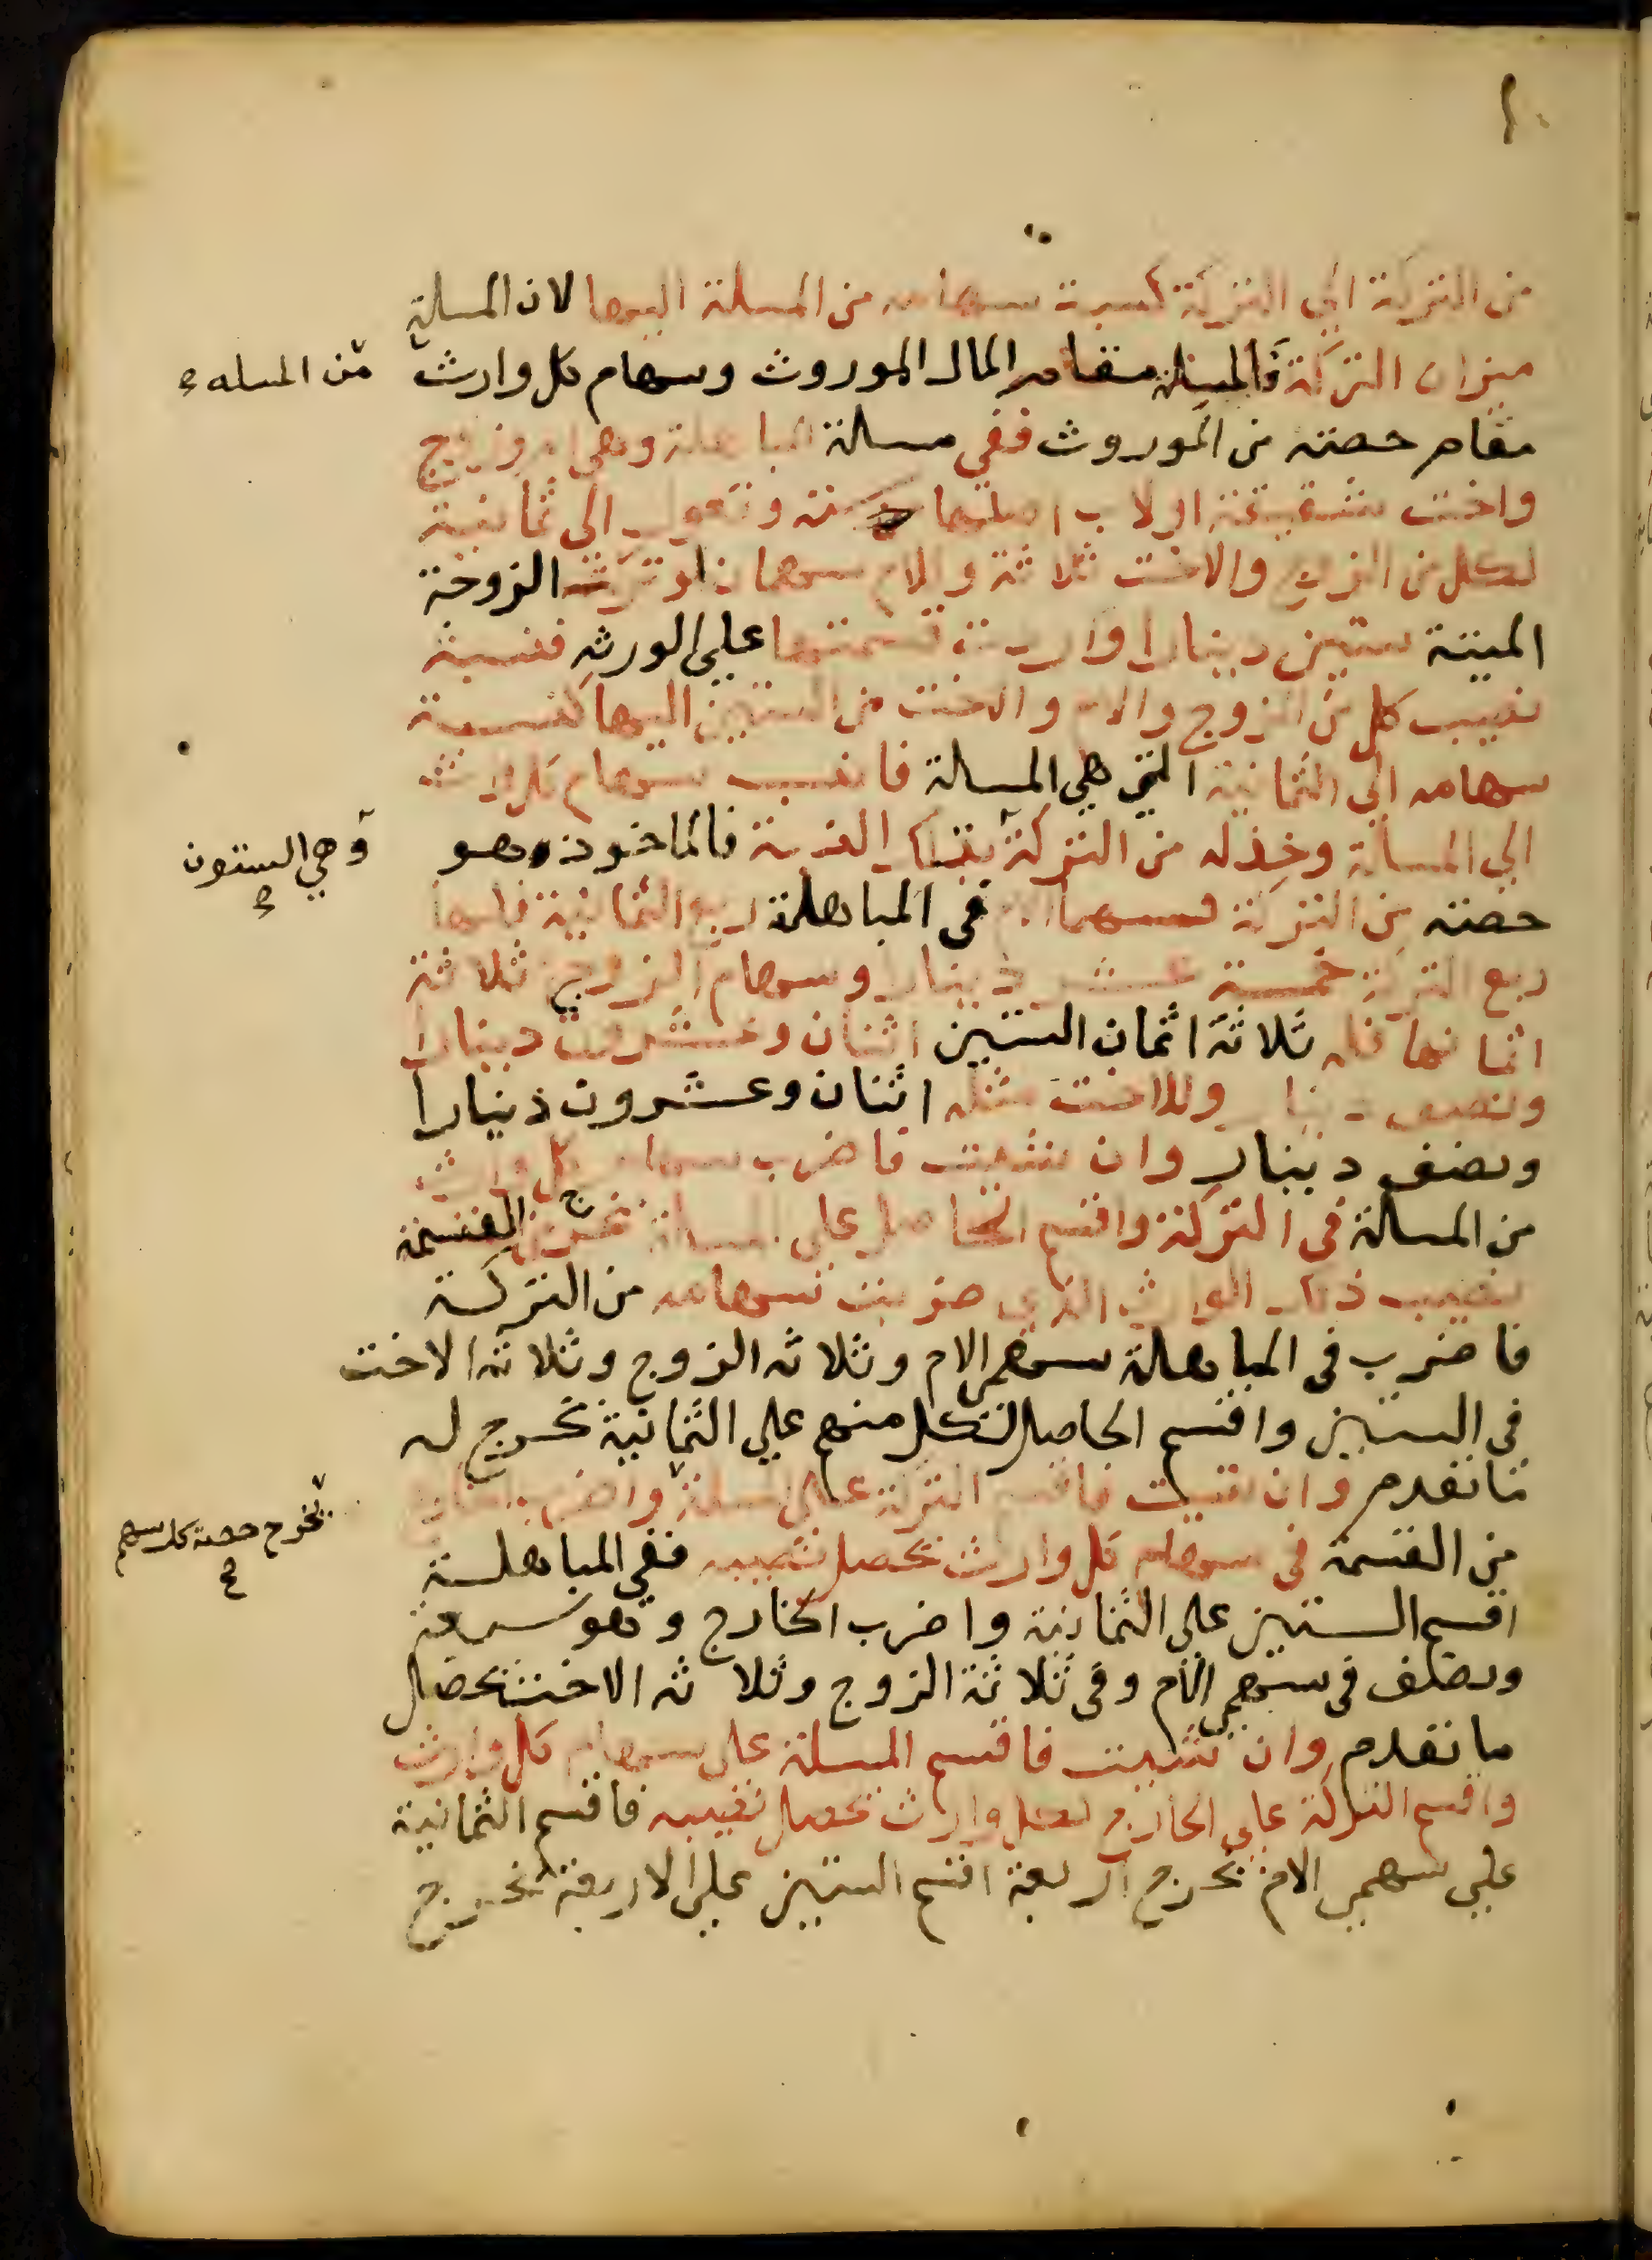 من التركة الي التركة كنسبة سهامه من المسلة اليها لان المسلة
ميزان التركة فالمسلة مقام المال الموروث وسهام كل وارث
من المسله
مقام حصته من الموروث ففي مسلة المباهلة وهي ام وزوج
واخت شقيقة او لاب اصلها ستة وتعول الى ثمانية
لكل من الزوج والاخت ثلاثة وللام سهمان لو تركت الزوجة
الميتة ستين دينارا واردت قسمتها علي الورثه فنسبة
نصيب كل من الزوج والام والاخت من الستين اليها كنسبة
سهامه الي الثمانية التي هي المسالة فانسب سهام كل وارث
الي المسالة وخذله من التركة بتلك النسبة فالماخوذ هو
وهي الستون
حصته من التركة فسهما الام في المباهلة ربع الثمانية فلها
ربع التركة خمسة عشر دينارا وسهام الزوج ثلاثة
اثمانها فله ثلاثة اثمان الستين اثنان وعشرون دينارا
ونصف دينار وللاخت مثله اثنان وعشرون دينارا
ونصف دينار وان شيت فاضرب سهام كل وارث
من المسالة في التركة واقسم الحاصل على المسلة يخرج القسمة
نصيب ذلك الوارث الذي ضربت سهامه من التركة
فاضرب في المباهلة سهمي الام وثلاثه الزوج وثلاثة الاخت
في الستين واقسم الحاصل لكل منهم علي الثمانية يخرج له
ما تقدم وان شيت فاقسم التركة على المسلة واضرب الخارج
يخرج حصة كل سهم
من القسمة في سهام كل وارث يحصل نصيبه ففي المباهلة
اقسم الستين على الثمانية واضرب الخارج وهو سبعة
ونصف في سهمي الام وفي ثلاثة الزوج وثلاثه الاخت يحصل
ما تقدم وان شيت فاقسم المسلة على سهام كل وارث
واقسم التركة علي الخارج لكل وارث يحصل نصيبه فاقسم الثمانية
علي سهمي الام يخرج اربعة اقسم الستين على الاربعة يخرج